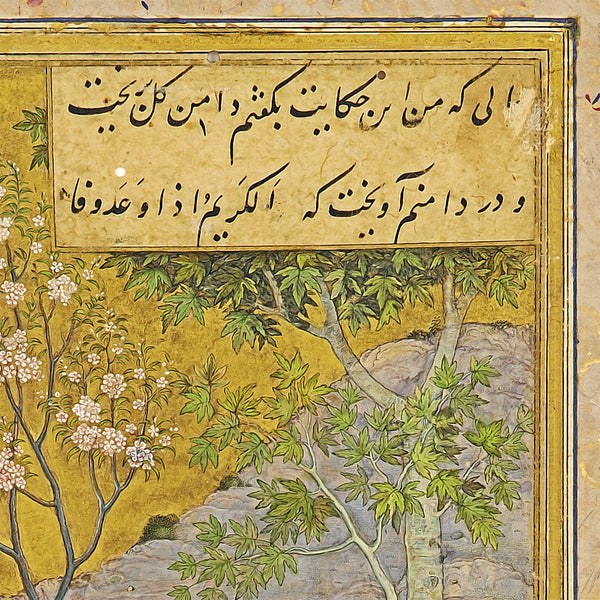 حالی که من این حکایت بگفتم دامن گل بریخت
و در دامنم آویخت که اَلکَریمُ اذا وَعَدَ وفا